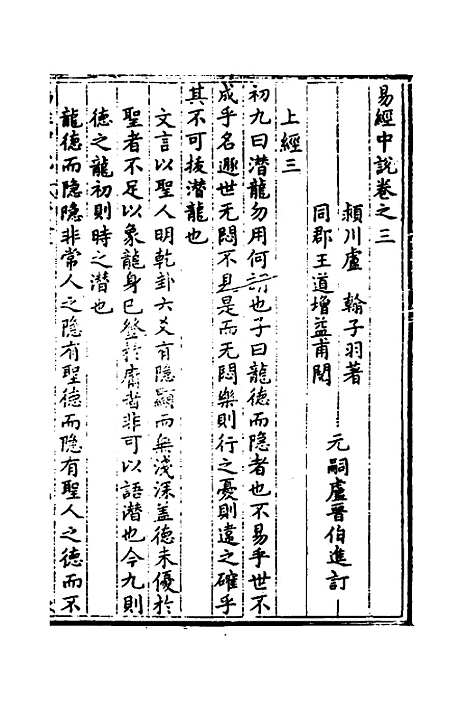 易經中說卷之三
頴川盧　翰子羽著
元嗣盧晉伯進訂
同郡王道增益甫閱
上經三
初九曰潜龍勿用何謂也子曰龍德而隐者也不易乎世不
成乎名遯世无悶不見是而无悶樂則行之憂則違之確乎
其不可拔潜龍也
文言以聖人明乾卦六爻有隐顯而無淺深盖德未優於
聖者不足以象龍身已登於庸者非可以語潜也今九則
德之龍初則時之潜也
龍德而隐隐非常人之隐有聖德而隐有聖人之德而不